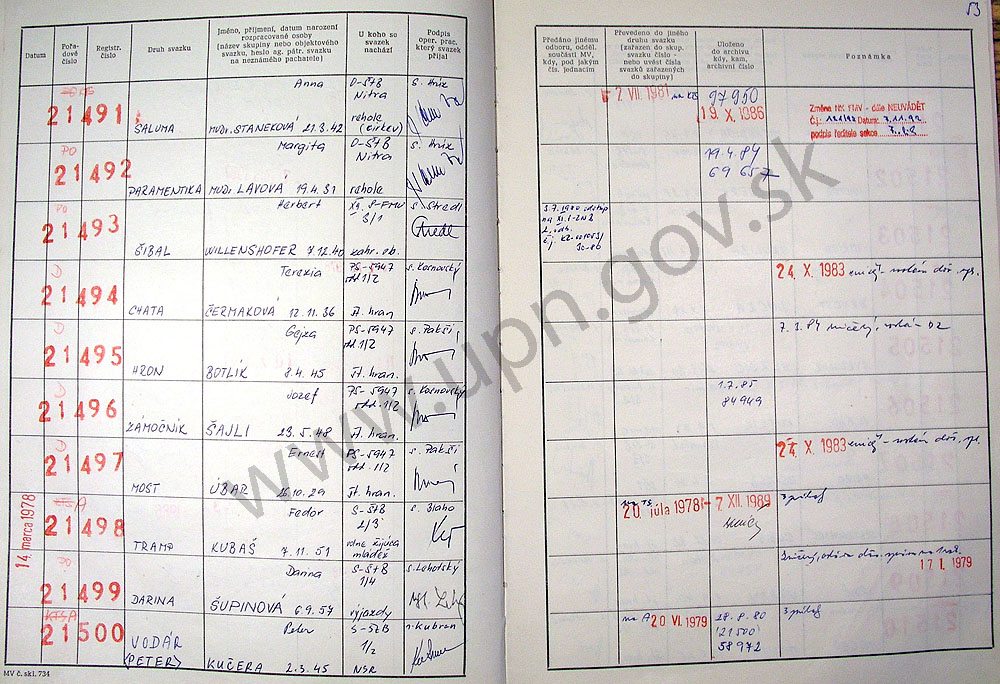 53
Datum
Pořa-
dové
číslo
Registr.
číslo
Druh svazku
Jméno, příjmení, datum narození
rozpracované osoby
(název skupiny nebo objektového
svazku, heslo ag. pátr. svazku
na neznámého pachatele)
U koho se
svazek
nachází
Podpis
oper. prac.
který svazek
přijal
Předáno jinému
odboru, odděl.
součásti MV,
kdy, pod jakým
čís. jednacím
Převedeno do jiného
druhu svazku
(zařazen do skup.
svazku číslo -
nebo uvést čísla
svazků zařazených
do skupiny)
Uloženo
do archivu
kdy, kam,
archivní číslo
Poznámka
21491
ŠALUMA
Anna
MUDr. STANEKOVÁ 21.3.42
Nitra
rehole
2 VII. 1981
97950
19 X. 1986
Změna NK FMV - dále NEUVÁDĚT
Č.j.: Datum: 3.11.92
podpis ředitele sekce
PO
21492
PARAMENTIKA
Margita
MUDr. LAVOVÁ 19.4.31
Nitra
rehole
19.4.84
69657
PO
21493
ŠIBAL
Herbert
WILLENSHOFER 7.12.40
zahr. ob.
D
21494
CHATA
Terezia
ČERMAKOVÁ 12.11.36
PS-5947
odd. 1/2
št. hran
s. Kosnovský
24. X. 1983
D
21495
HRON
Gejza
BOTLÍK 8.4.45
PS-5947
odd. 1/2
št. hran.
s. Pakši
D
21496
ZÁMOČNÍK
Jozef
ŠAJLI 23.5.48
PS-5947
odd. 1/2
št. hran.
s. Kosnovský
1.7.85
84949
D
21497
MOST
Ernest
ÚBAR 26.10.29
PS-5947
odd. 1/2
št. hran.
s. Pakši
24. X. 1983
14. marca 1978
21498
TRAMP
Fedor
KUBAŠ 7.11.51
S-ŠtB
2/3
voľne žijúca
mládež
s. Blaho
20. júla 1978
7 XII. 1989
PO
21499
DARINA
Darina
ŠUPINOVÁ 6.9.57
S-ŠtB
1/4
výjazdy
s. Lehotský
17 I. 1979
21500
VODÁR
(PETER)
Peter
KUČERA 2.3.45
S-ŠtB
1/2
NSR
s. Kubran
na A 20 VI. 1979
28.8.80
21500
58972
MV č. skl. 734
www.upn.gov.sk